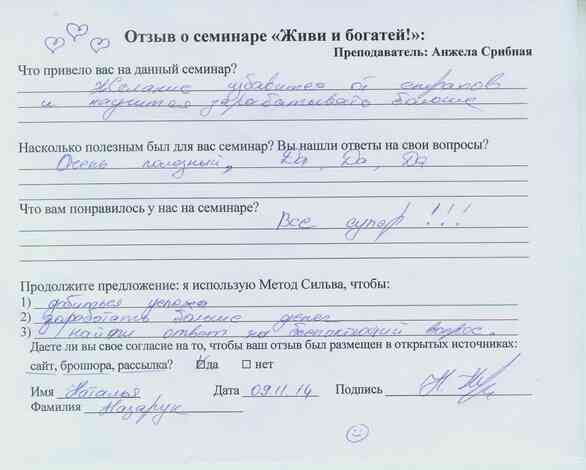 Отзыв о семинаре «Живи и богатей!»:
Преподаватель: Анжела Срибная
Что привело вас на данный семинар?
Желание избавится от страхов
и научится зарабатывать больше
Насколько полезным был для вас семинар? Вы нашли ответы на свои вопросы?
Очень полезный, Да, Да, Да
Что вам понравилось у нас на семинаре?
Все супер!!!
Продолжите предложение: я использую Метод Сильва, чтобы:
1) добиться успеха
2) заработать больше денег
3) найти ответ на беспокоющий вопрос.
Даете ли вы свое согласие на то, чтобы ваш отзыв был размещен в открытых источниках:
сайт, брошюра, рассылка? ☑да ☐ нет
Имя Наталья Дата 09.11.14 Подпись
Фамилия Назарук